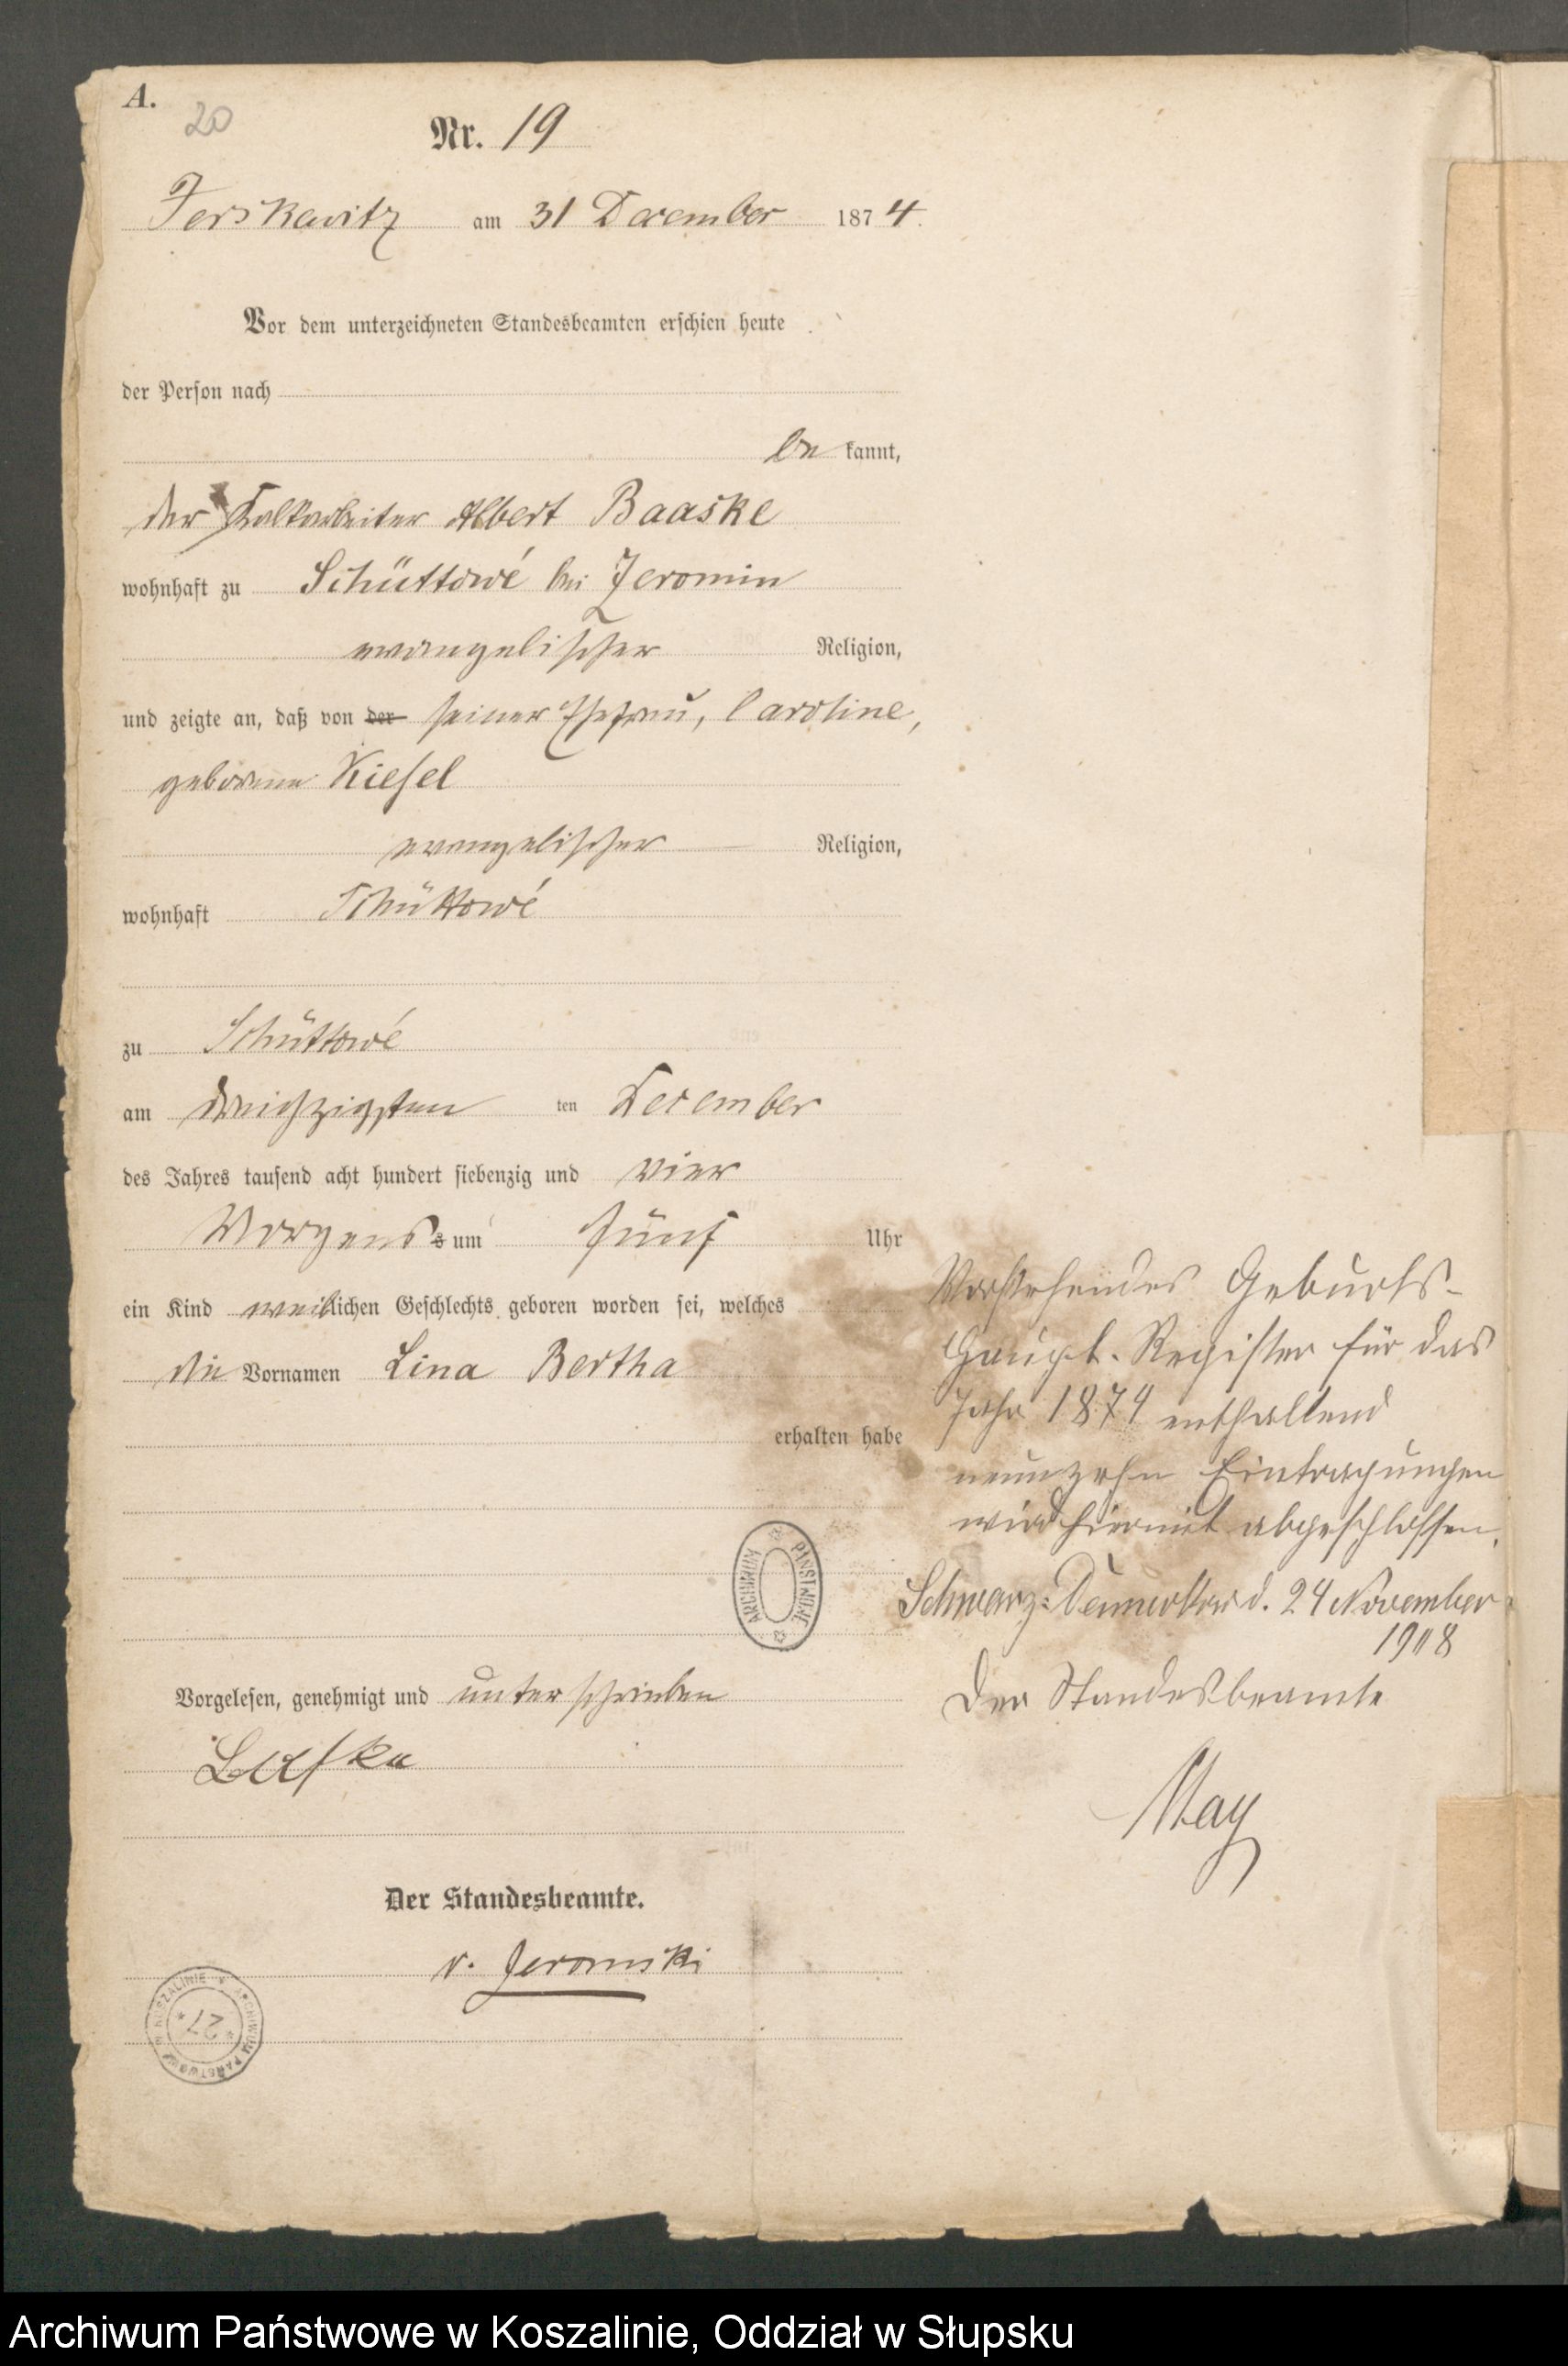 A.
20
Nr. 19
Jerskewitz am 31 December 1874.
Vor dem unterzeichneten Standesbeamten erschien heute
der Person nach
be kannt,
der Albert Baaske
wohnhaft zu Schüttowé bei Jeromin
evangelischer Religion,
und zeigte an, daß von der seiner Ehefrau, Caroline,
geborene Kiesel
evangelischer Religion,
wohnhaft Schüttowé
zu Schüttowé
am dreißzigsten ten December
des Jahres tausend acht hundert siebenzig und vier
Morgens s um fünf Uhr
ein Kind weiblichen Geschlechts geboren worden sei, welches
die Vornamen Lina Bertha
erhalten habe
Vorgelesen, genehmigt und unterschrieben
Der Standesbeamte.
v. Jeromski
Vorstehendes Geburts-
Haupt-Register für das
Jahr 1874 enthaltend
neunzehn Eintragungen
wird hiermit abgeschlossen.
Schwarz-Damerkow d. 24 November
1908
Der Standesbeamte
May
ARCHIWUM PAŃSTWOWE
ARCHIWUM PAŃSTWOWE W KOSZALINIE
27
Archiwum Państwowe w Koszalinie, Oddział w Słupsku